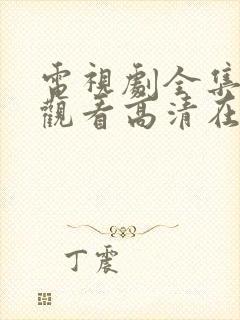 電視劇全集
觀看高清在
丁震